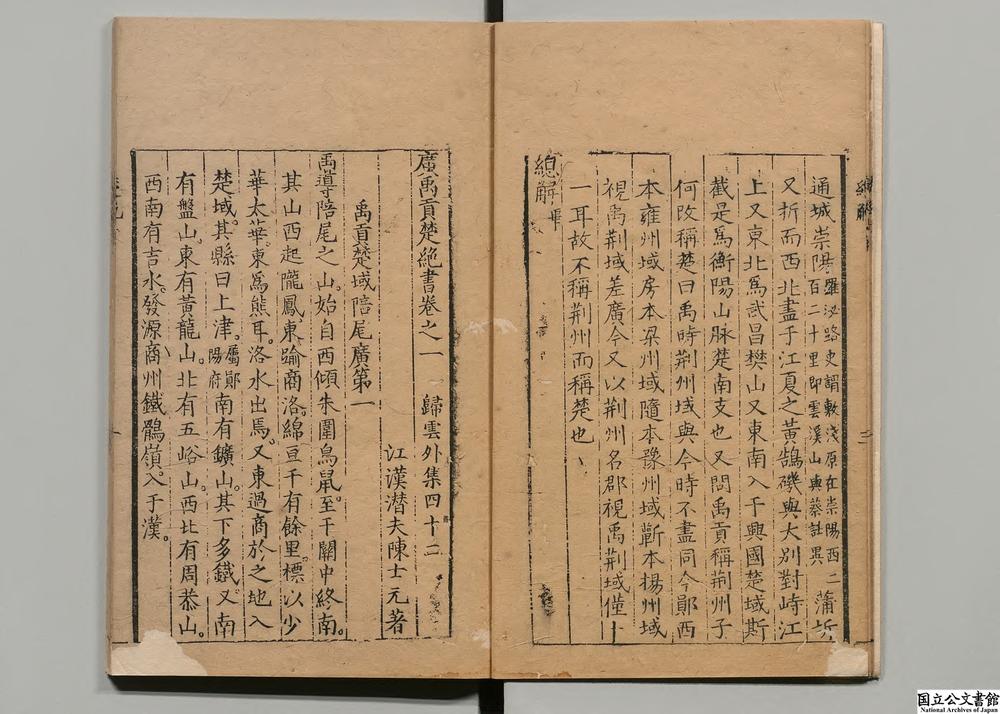 通城崇陽羅泌路史謂敷淺原在崇陽西二百二十里即雲溪山與蔡註異蒲圻
又折而西北盡于江夏之黃鵠磯與大別對峙江
上又東北為武昌樊山又東南入于興國楚域斯
截是爲衡陽山脉楚南支也又問禹貢稱荊州子
何改稱楚曰禹時荊州域與今時不盡同今鄖西
本雍州域房本梁州域隨本豫州域蘄本揚州域
視禹荊域差廣今又以荊州名郡視禹荊域僅十
一耳故不稱荊州而稱楚也
總解畢
廣禹貢楚絶書卷之一 歸雲外集四十二
江漢潜夫陳士元著
禹貢楚域陪尾廣第一
禹導陪尾之山始自西傾朱圉鳥鼠。至于關中終南。
其山西起隴鳳、東踰商洛。綿亘千有餘里。標以少
華太華、東爲熊耳。洛水出焉。又東過商於之地入
楚域。其縣曰上津。屬鄖陽府南有鑛山。其下多鐵。又南
有盤山。東有黃龍山。北有五峪山。西北有周恭山。
西南有吉水。發源商州鐵鶻嶺。入于漢。
国立公文書館
National Archives of Japan